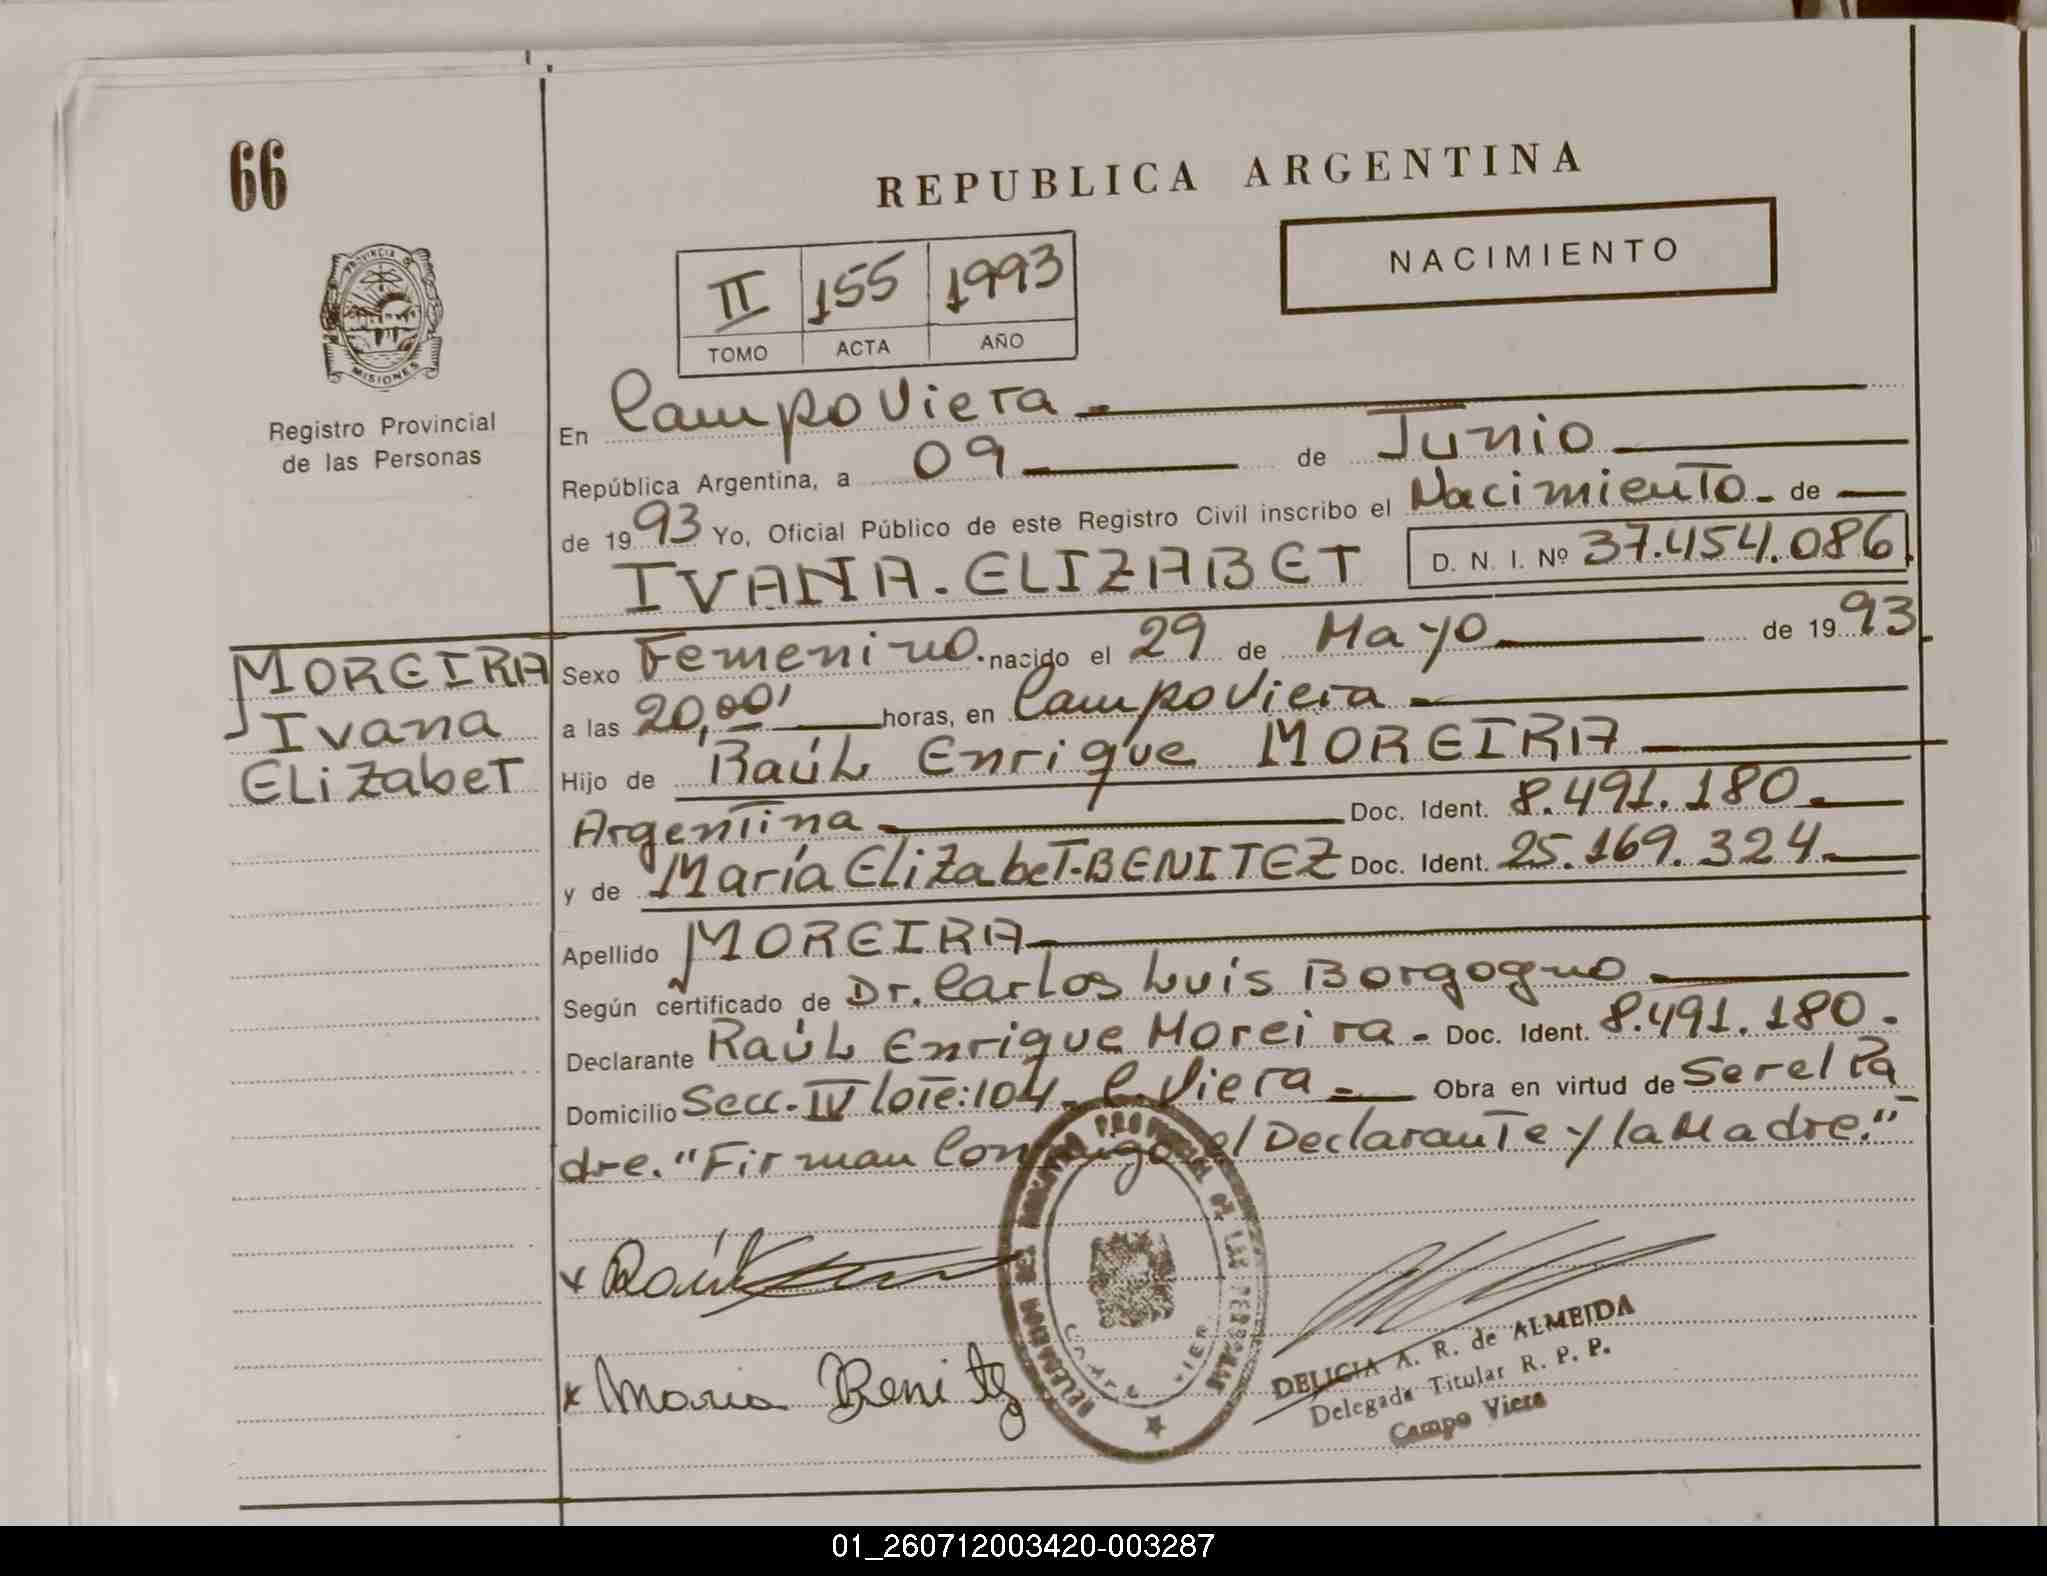 66
REPUBLICA ARGENTINA
NACIMIENTO
II 155 1993
TOMO ACTA AÑO
PROVINCIA D
MISIONES
Registro Provincial
de las Personas
En Campo Viera
República Argentina, a 09 de Junio
de 1993 Yo, Oficial Público de este Registro Civil inscribo el Nacimiento de
IVANA. ELIZABET D. N. I. Nº 37.454.086
MOREIRA
Ivana
Elizabet
Sexo Femenino. nacido el 29 de Mayo de 1993
a las 20,00' horas, en Campo Viera
Hijo de Raúl Enrique MOREIRA
Argentina Doc. Ident. 8.491.180.
y de María Elizabet-BENITEZ Doc. Ident. 25.169.324
Apellido MOREIRA
Según certificado de Dr. Carlos Luis Borgogno
Declarante Raúl Enrique Moreira - Doc. Ident. 8.491.180.
Domicilio Secc. IV lote: 104 - C. Viera Obra en virtud de Ser el Pa
dre. "Firman Conmigo el Declarante y la Madre."
x Raúl
x Maria Benitez
DELEGACION DEL REGISTRO PROVINCIAL DE LAS PERSONAS
CAMPO VIERA
DELICIA A. R. de ALMEIDA
Delegada Titular R. P. P.
Campo Viera
01_260712003420-003287